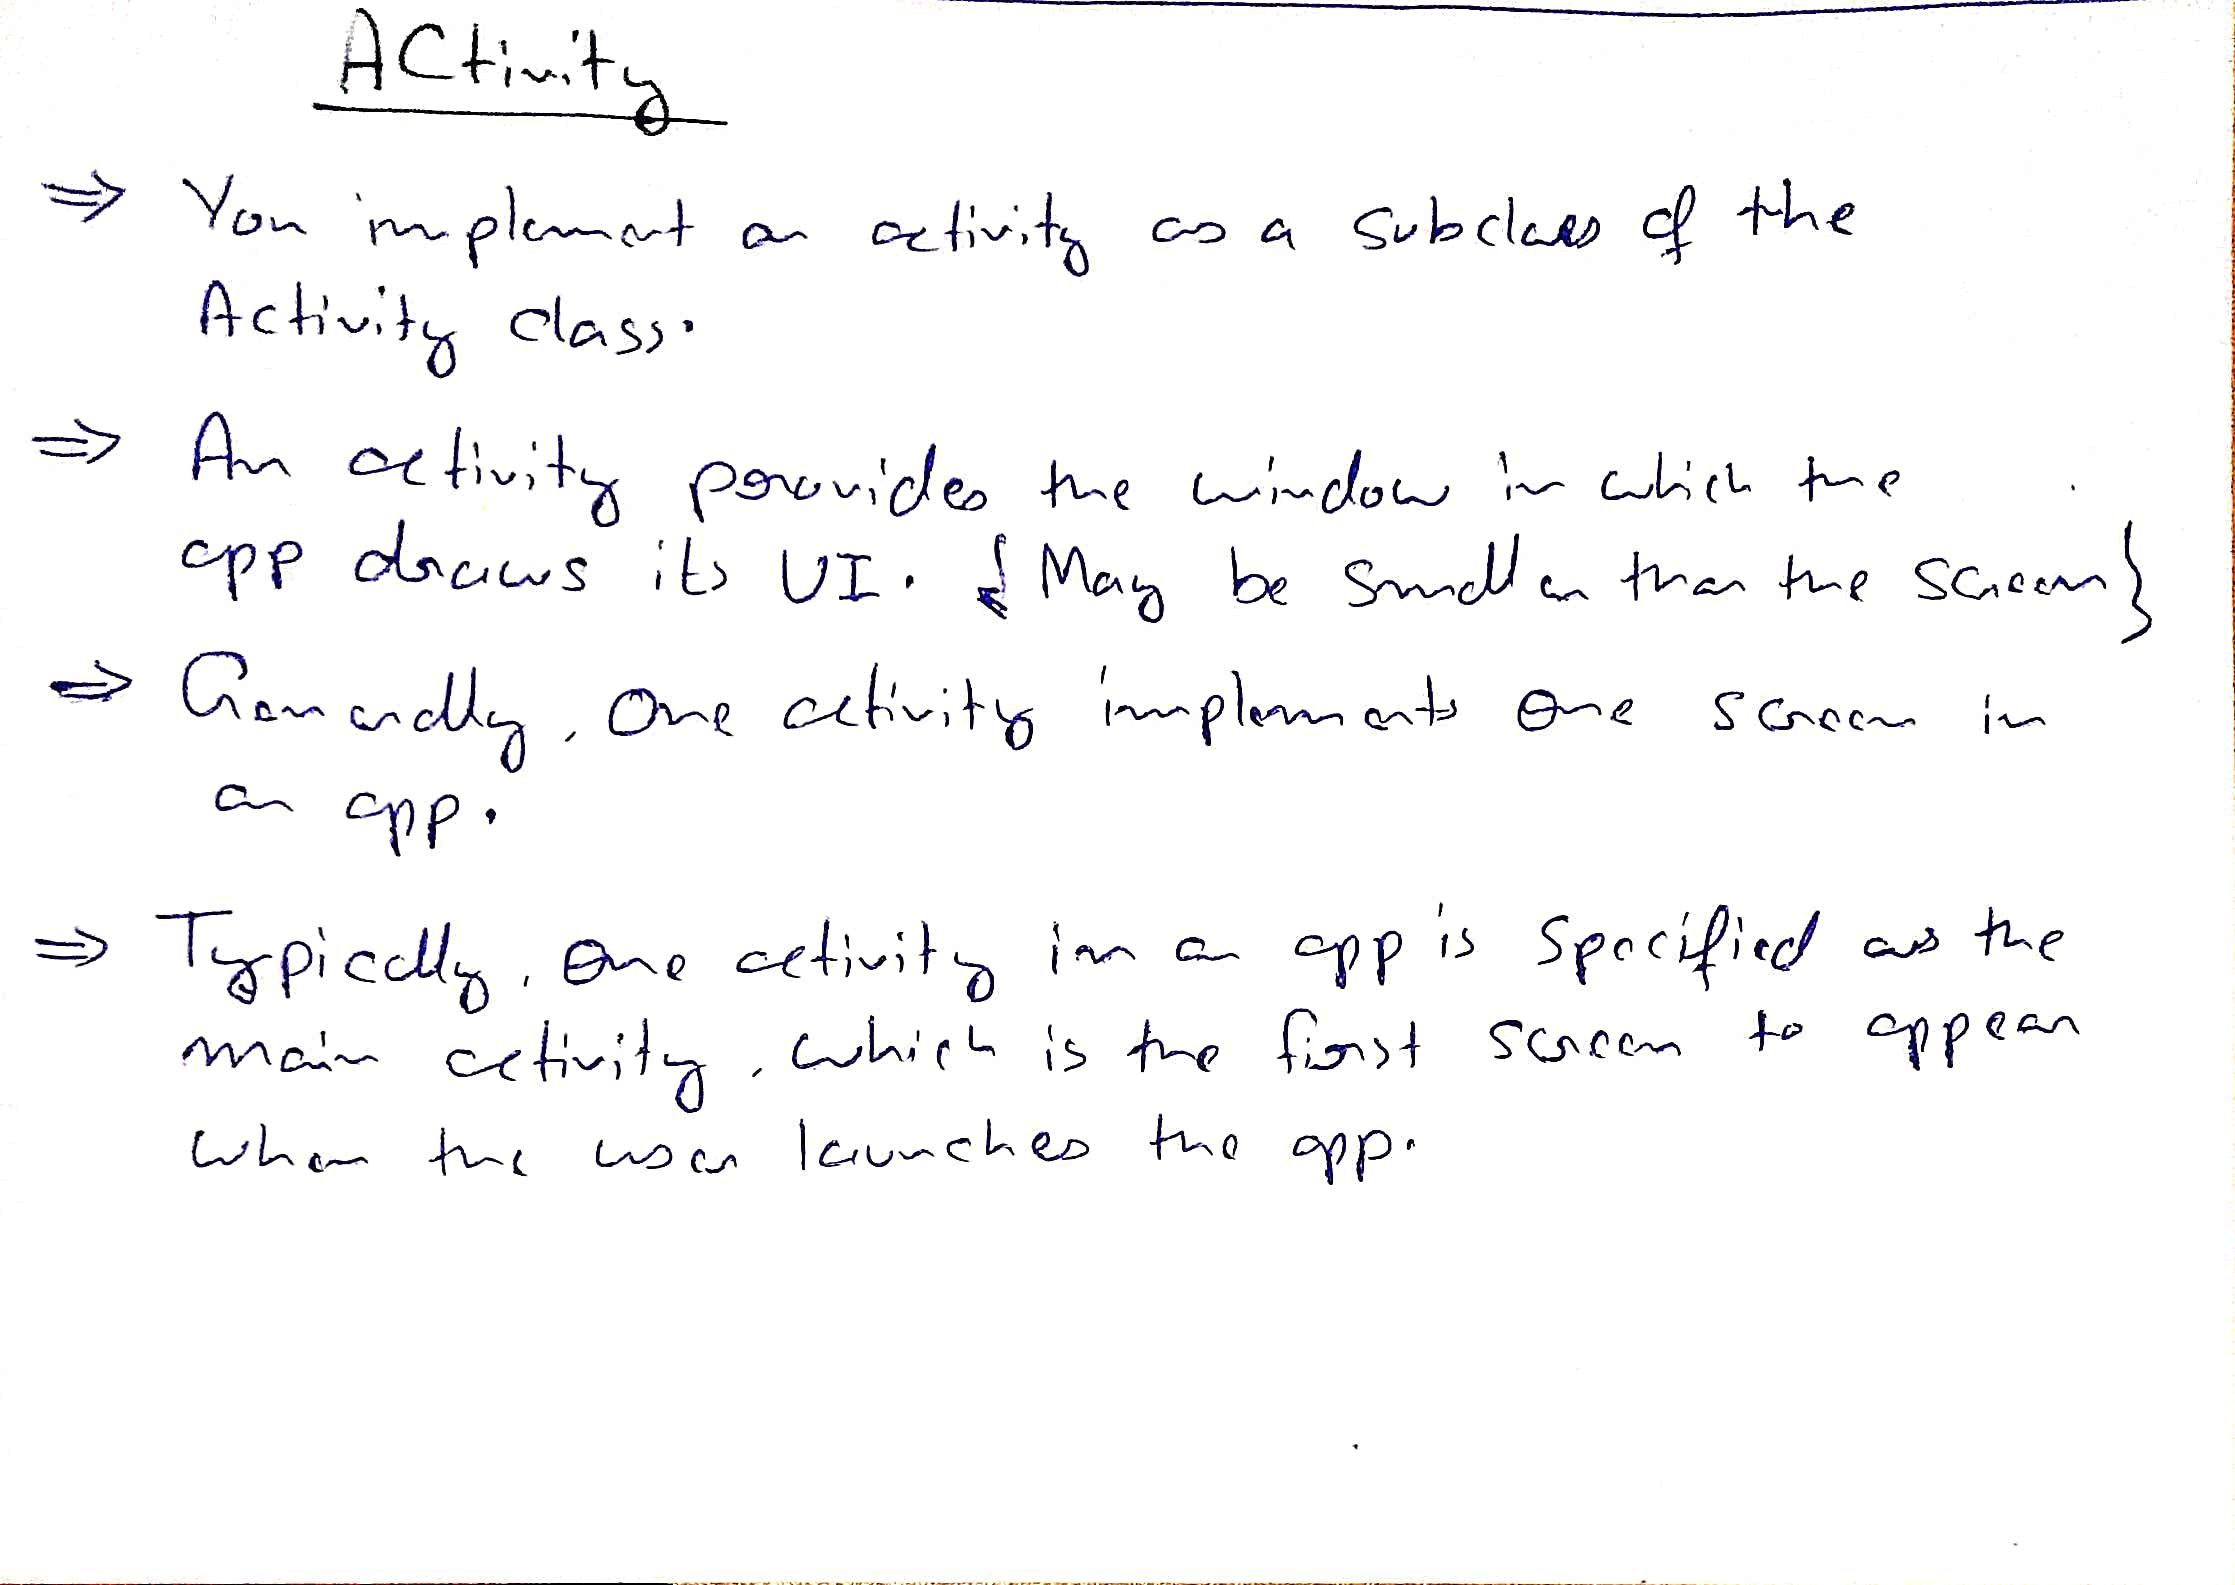 Activity
⇒ You implement an activity as a subclass of the
Activity class.
⇒ An activity provides the window in which the
app draws its UI. {May be smaller than the screen}
⇒ Generally, one activity implements one screen in
an app.
⇒ Typically, one activity in an app is specified as the
main activity, which is the first screen to appear
when the user launches the app.